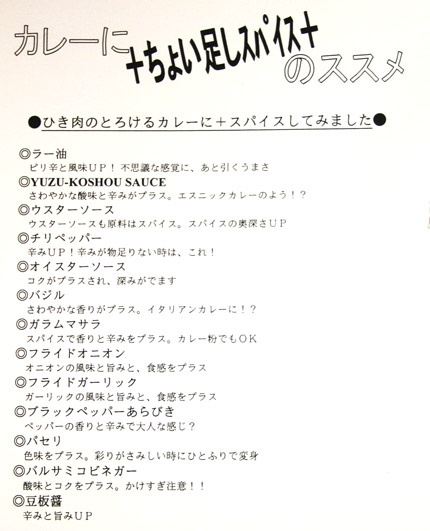 カレーに
+ちょい足しスパイス+
のススメ
●ひき肉のとろけるカレーに＋スパイスしてみました●
◎ラー油
ピリ辛と風味ＵＰ！不思議な感覚に、あと引くうまさ
◎YUZU-KOSHOU SAUCE
さわやかな酸味と辛みがプラス。エスニックカレーのよう！？
◎ウスターソース
ウスターソースも原料はスパイス。スパイスの奥深さＵＰ
◎チリペッパー
辛みＵＰ！辛みが物足りない時は、これ！
◎オイスターソース
コクがプラスされ、深みがでます
◎バジル
さわやかな香りがプラス。イタリアンカレーに！？
◎ガラムマサラ
スパイスで香りと辛みをプラス。カレー粉でもＯＫ
◎フライドオニオン
オニオンの風味と旨みと、食感をプラス
◎フライドガーリック
ガーリックの風味と旨みと、食感をプラス
◎ブラックペッパーあらびき
ペッパーの香りと辛みで大人な感じ？
◎パセリ
色味をプラス。彩りがさみしい時にひとふりで変身
◎バルサミコビネガー
酸味とコクをプラス。かけすぎ注意！！
◎豆板醤
辛みと旨みＵＰ